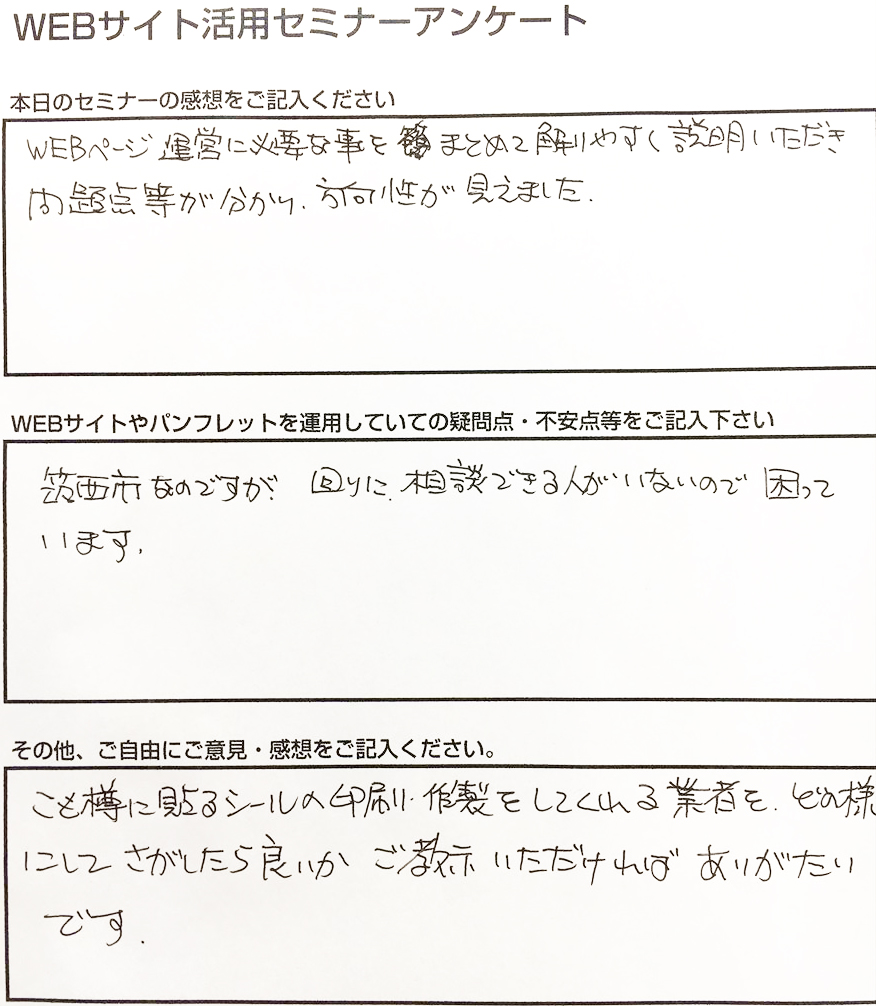 WEBサイト活用セミナーアンケート
本日のセミナーの感想をご記入ください
WEBページ運営に必要な事をまとめて解りやすく説明いただき
問題点等が分かり、方向性が見えました.
WEBサイトやパンフレットを運用していての疑問点・不安点等をご記入下さい
筑西市なのですが 回りに、相談できる人がいないので困って
います.
その他、ご自由にご意見・感想をご記入ください。
こも樽に貼るシールの印刷・作製をしてくれる業者を、どの様
にしてさがしたら良いか ご教示いただければ ありがたい
です.